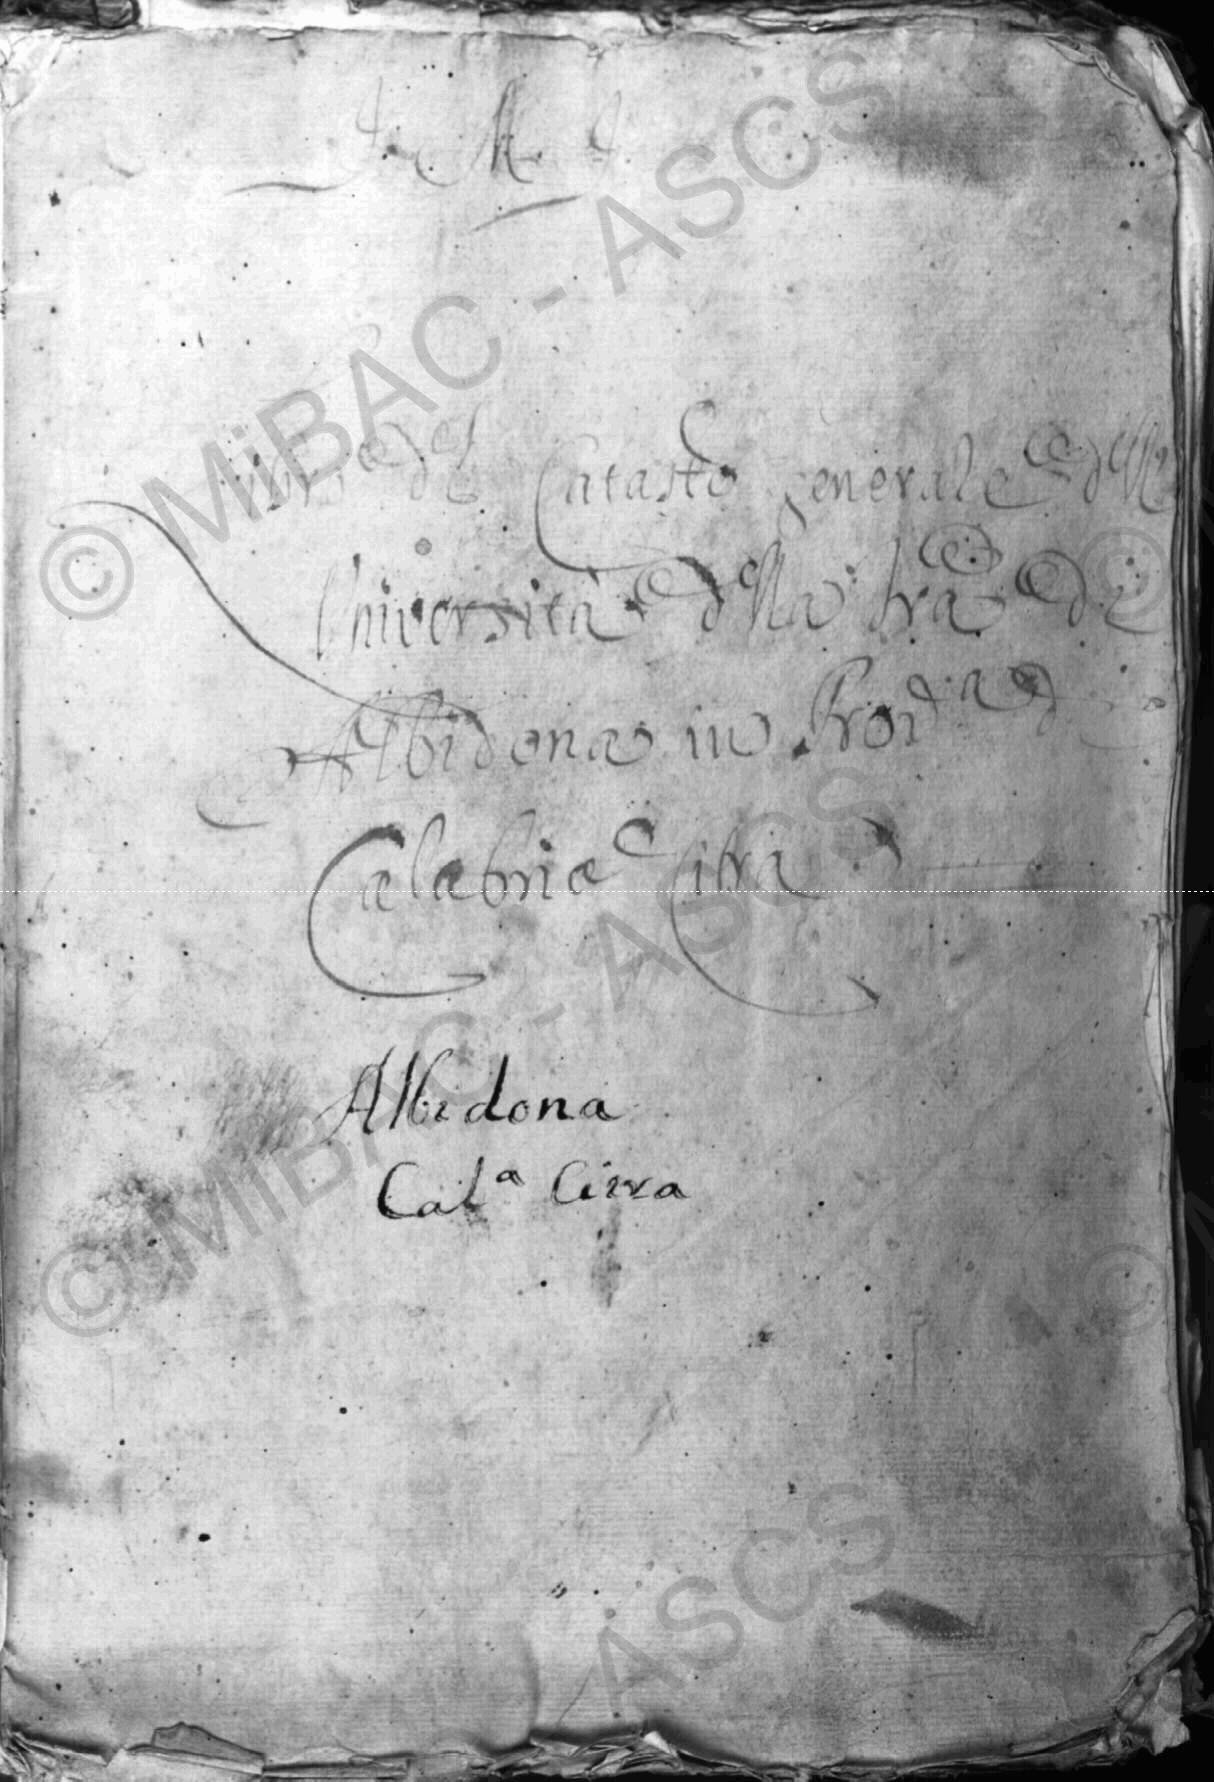 J. M. J.
Libro del Catasto generale dell'
Università della Tra di
Albidona in Provª di
Calabria Citra
Albidona
Calª Citra
© MiBAC - ASCS
© MiBAC - ASCS
ASCS